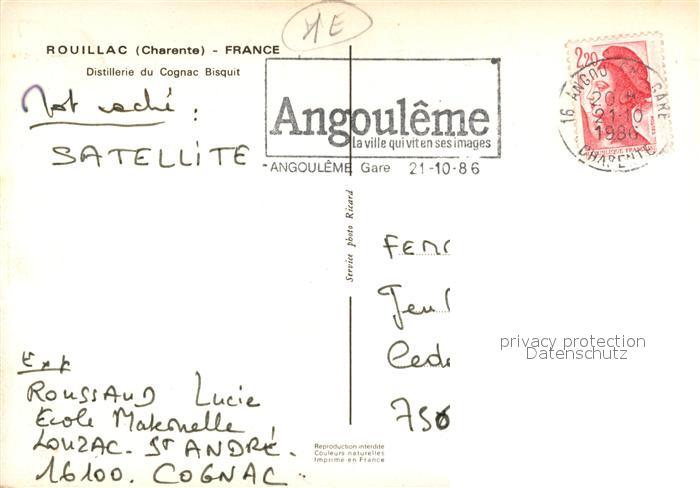 ME
ROUILLAC (Charente) - FRANCE
Distillerie du Cognac Bisquit
Mot caché :
SATELLITE
Angoulême
La ville qui vit en ses images
ANGOULÊME Gare 21-10-86
2,20
16 ANGOU GARE
20H
21-10
1986
CHARENTE
REPUBLIQUE FRANC
Service photo Ricard
FEM
Jeu
Cede
756
privacy protection
Datenschutz
Exp
ROUSSAUD Lucie
Ecole Maternelle
LOUZAC. ST ANDRÉ.
16100. COGNAC
Reproduction interdite
Couleurs naturelles
Imprimé en France